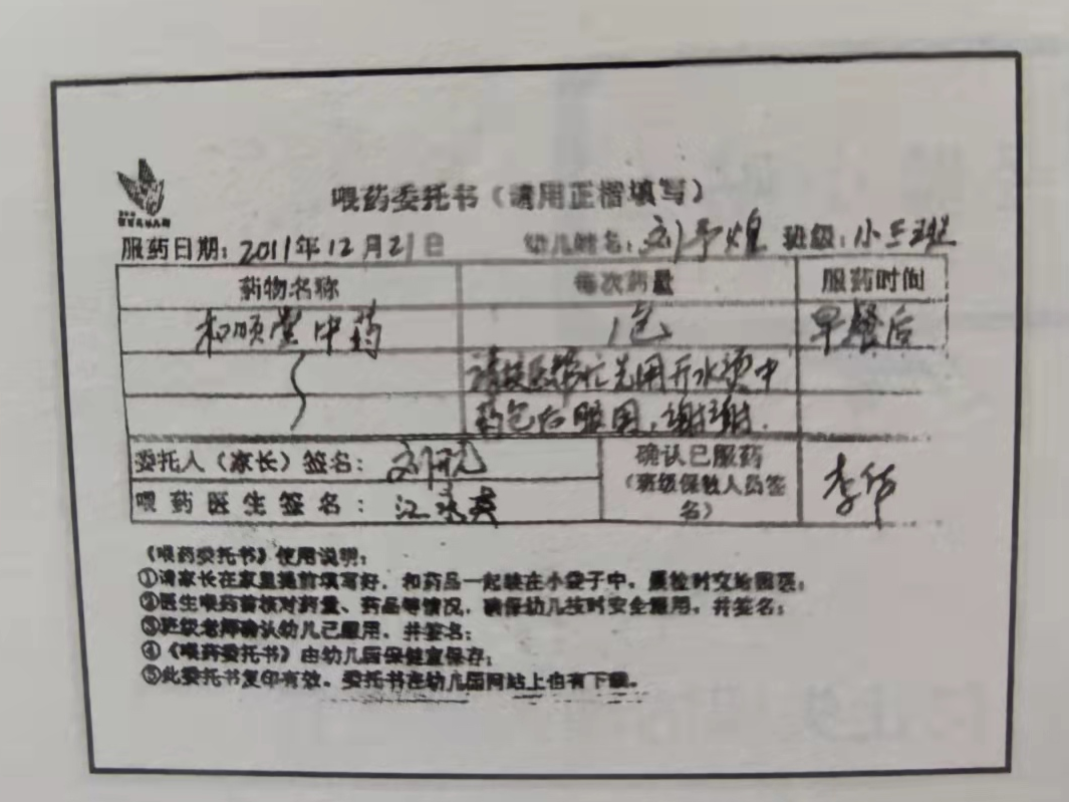 喂药委托书（请用正楷填写）
服药日期：2011年12月21日 幼儿姓名：刘予煌 班级：小三班
药物名称 每次药量 服药时间
和顺堂中药 1包 早餐后
请校医帮忙先用开水烫中
药包后服用，谢谢.
委托人（家长）签名：
确认已服药
（班级保教人员签
名）
李华
喂药医生签名：
《喂药委托书》使用说明：
①请家长在家里提前填写好，和药品一起装在小袋子中，晨检时交给园医；
②医生喂药前核对药量、药品等情况，确保幼儿按时安全服用，并签名；
③班级老师确认幼儿已服用，并签名；
④《喂药委托书》由幼儿园保健室保存；
⑤此委托书复印有效。委托书在幼儿园网站上也有下载。